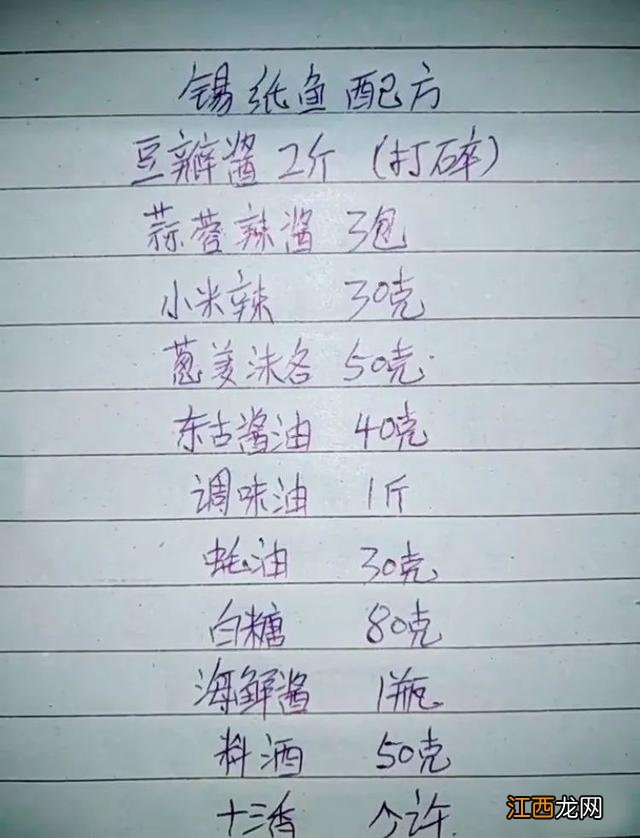 锡纸鱼配方
豆瓣酱 2斤 (打碎)
蒜蓉辣酱 3包
小米辣 30克
葱姜沫各 50克
东古酱油 40克
调味油 1斤
蚝油 30克
白糖 80克
海鲜酱 1瓶
料酒 50克
十三香 少许
江西龙网